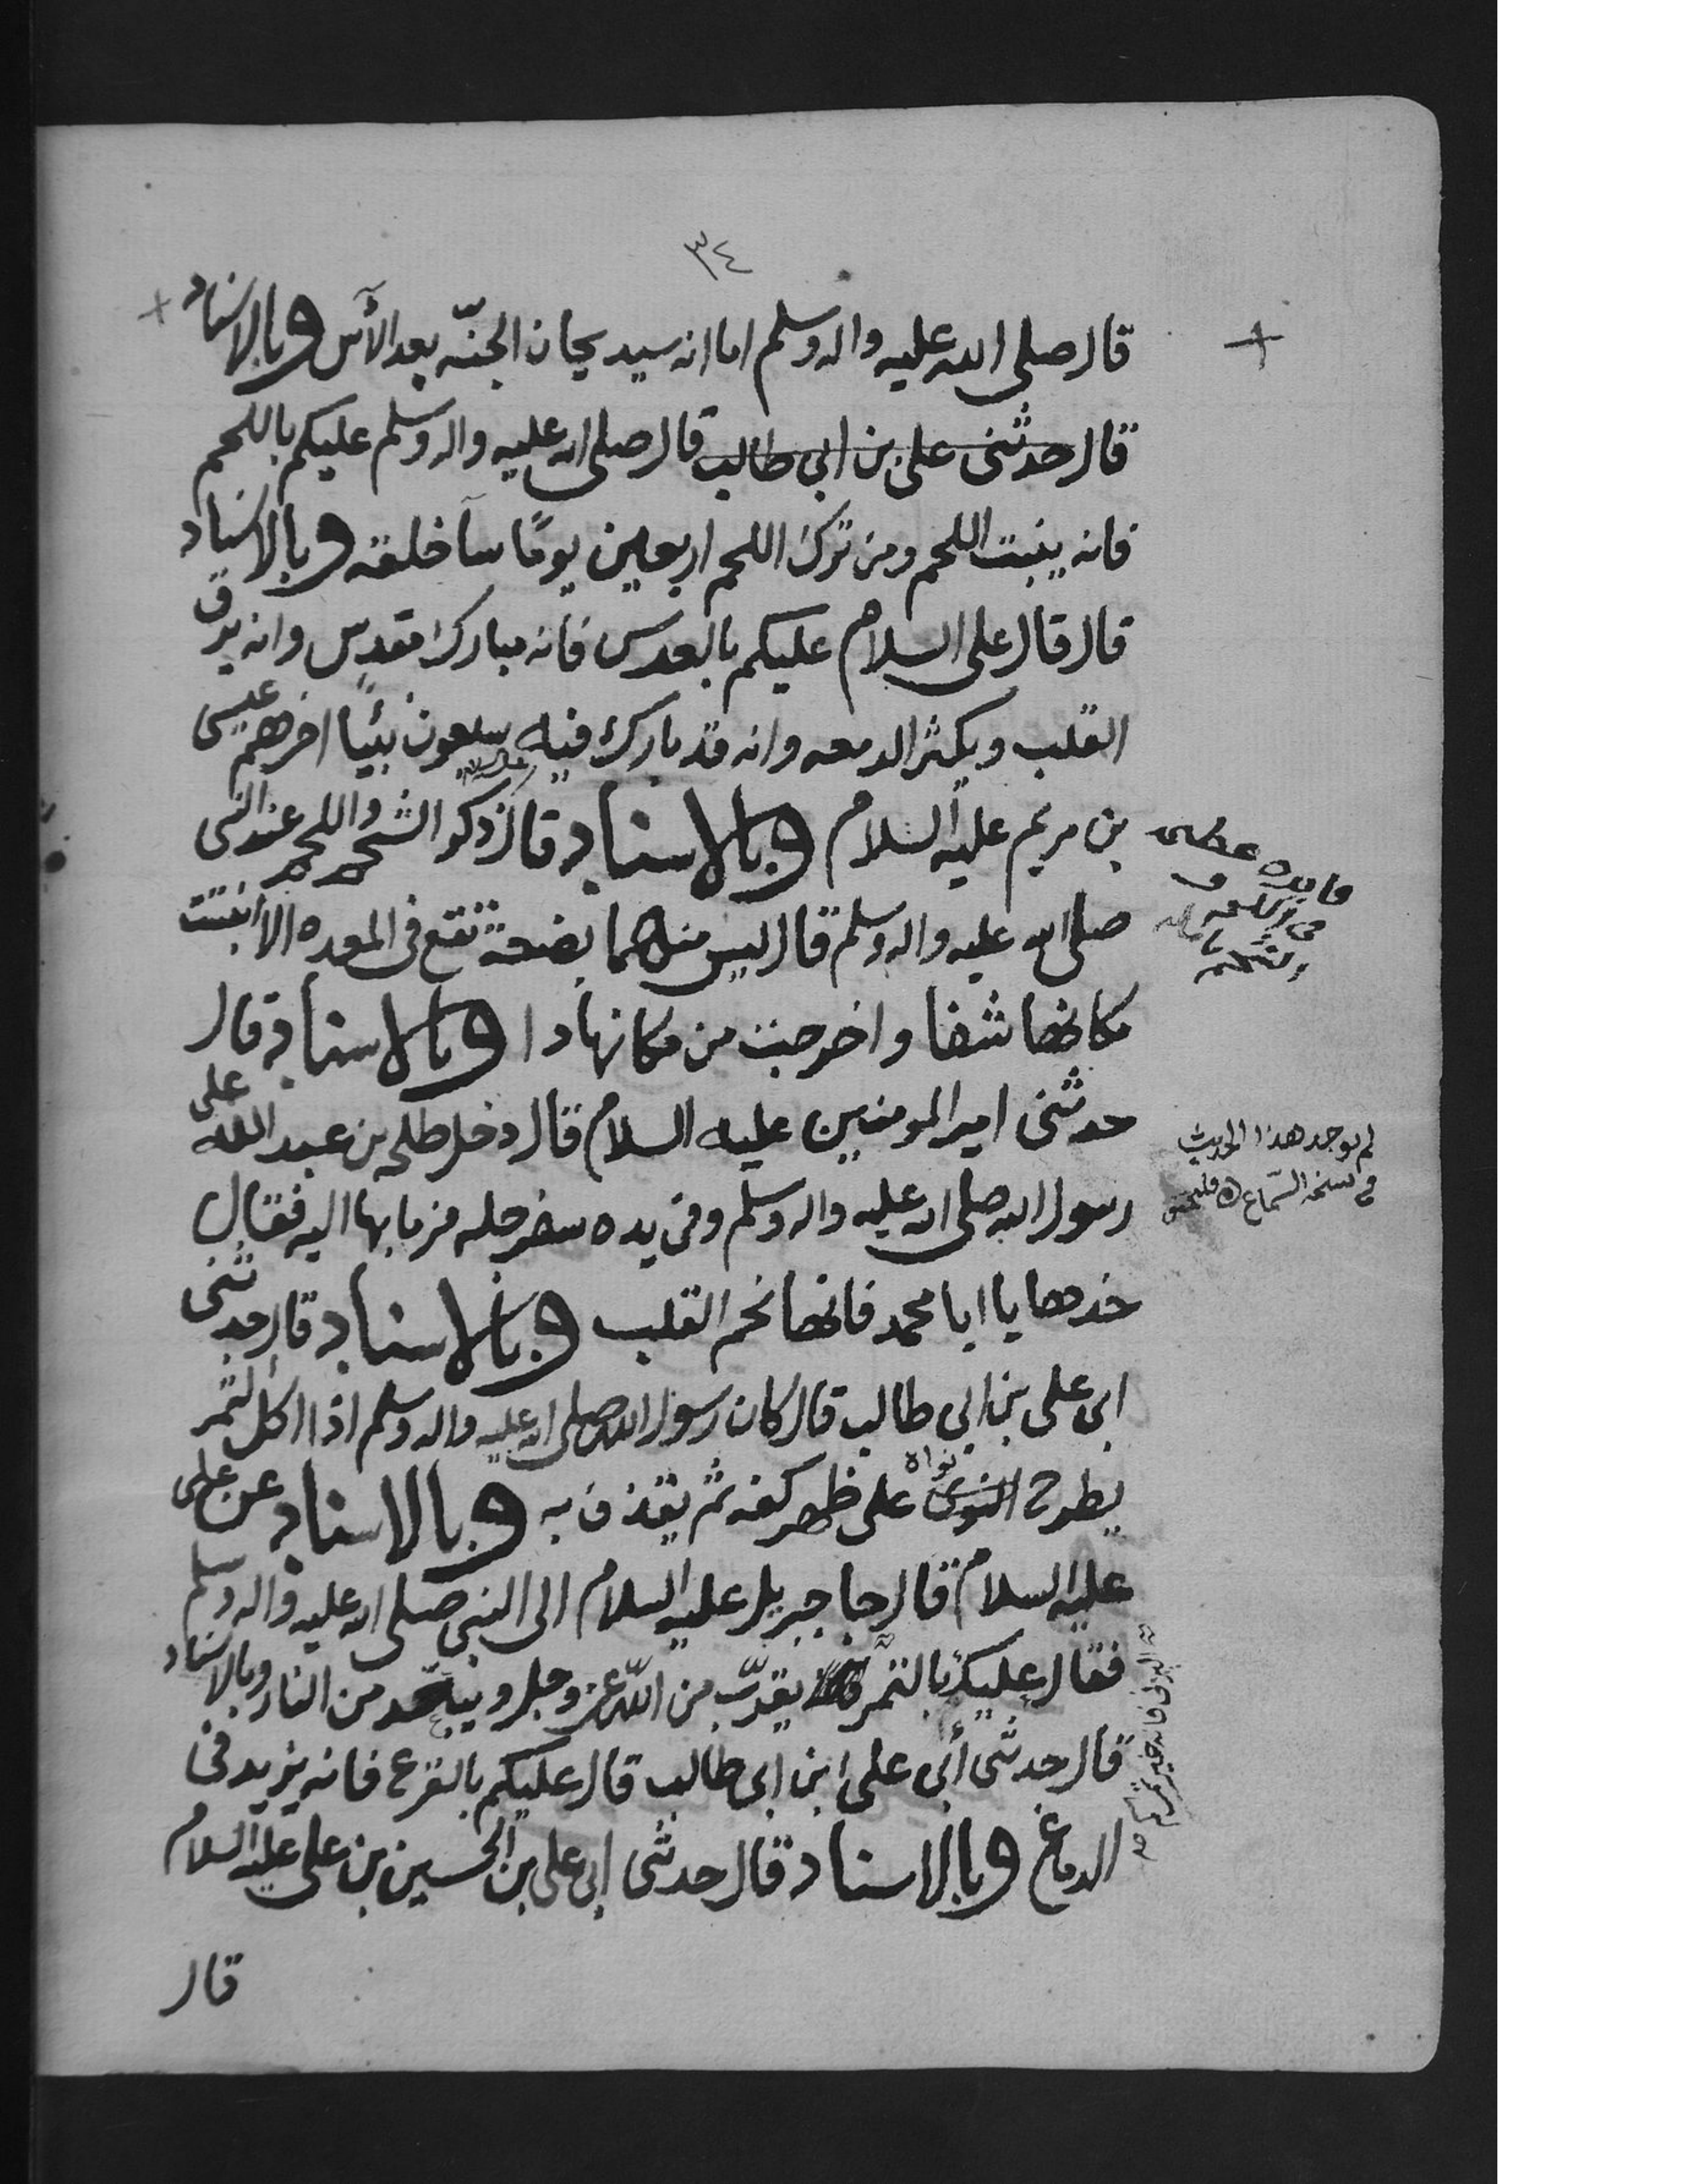 ٣٤
قال صلى الله عليه واله وسلم اما انه سيد ريحان الجنّه بعد الآس وبالاسناد
قال حدثنى على بن ابى طالب قال صلى الله عليه واله وسلم عليكم باللحم
فانه ينبت اللحم ومن ترك اللحم اربعين يومًا سآ خلقه وبالاسناد
قال قال على السلام عليكم بالعدس فانه مبارك مقدس وانه يرق
القلب ويكثر الدمعه وانه قد بارك فيه سبعون نبيًا اخرهم عيسى
بن مريم عليه السلام وبالاسناد قال ذكر الشحم واللحم عند النبى
صلى الله عليه واله وسلم قال ليس منهما بضعة تقع فى المعده الا انبتت
مكانها شفا واخرجت من مكانها دا وبالاسناد قال
حدثنى امير المومنين عليه السلام قال دخل طلحه بن عبد الله على
رسول الله صلى الله عليه واله وسلم وفى يده سفرجله فرما بها اليه فقال
خذها يا ابا محمد فانها تجم القلب وبالاسناد قال حدثنى
ابى على بن ابى طالب قال كان رسول الله صلى الله عليه واله وسلم اذا اكل التمر
يطرح النوى نواه على ظهر كفه ثم يقذف به وبالاسناد عن على
عليه السلام قال جا جبريل عليه السلام الى النبى صلى الله عليه واله وسلم
فقال عليك بالتمر يقرّب من اللّه عز وجل ويبعّد من النار وبالاسناد
قال حدثنى أبى على ابن ابى طالب قال عليكم بالقرع فانه يزيد فى
الدماغ وبالاسناد قال حدثنى ابى على بن الحسين بن على عليه السلام
قال
فايده عظمى
فى
لم يوجد هذا الحديث
فى نسخة السماع
البرنى فانه خير تمركم